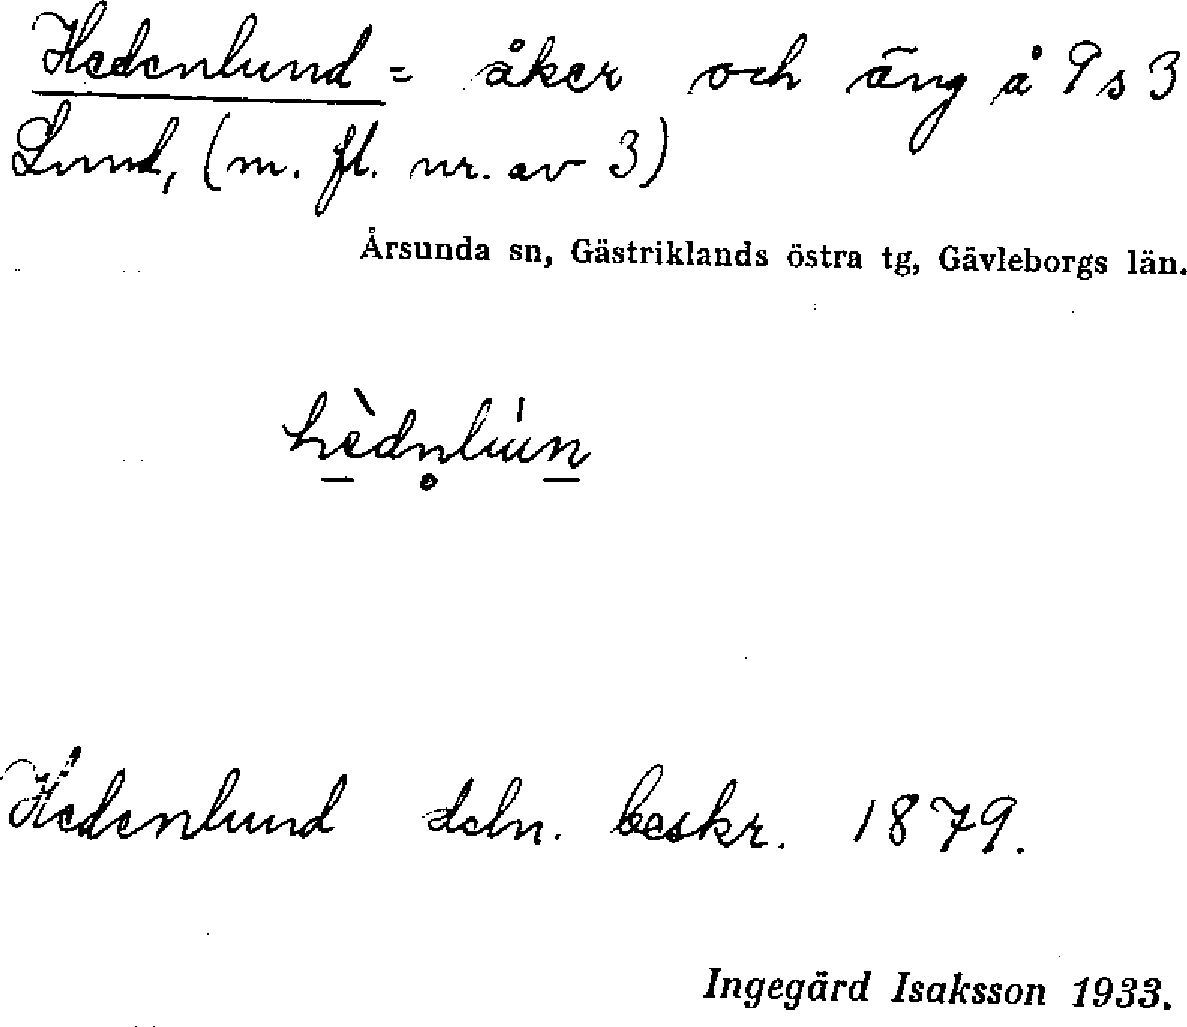 Hedenlund = åker och äng å 9 s 3
Lund, (m. fl. nr. av 3)
Årsunda sn, Gästriklands östra tg, Gävleborgs län.
hèdn̥lún
Hedenlund deln. beskr. 1879.
Ingegärd Isaksson 1933.